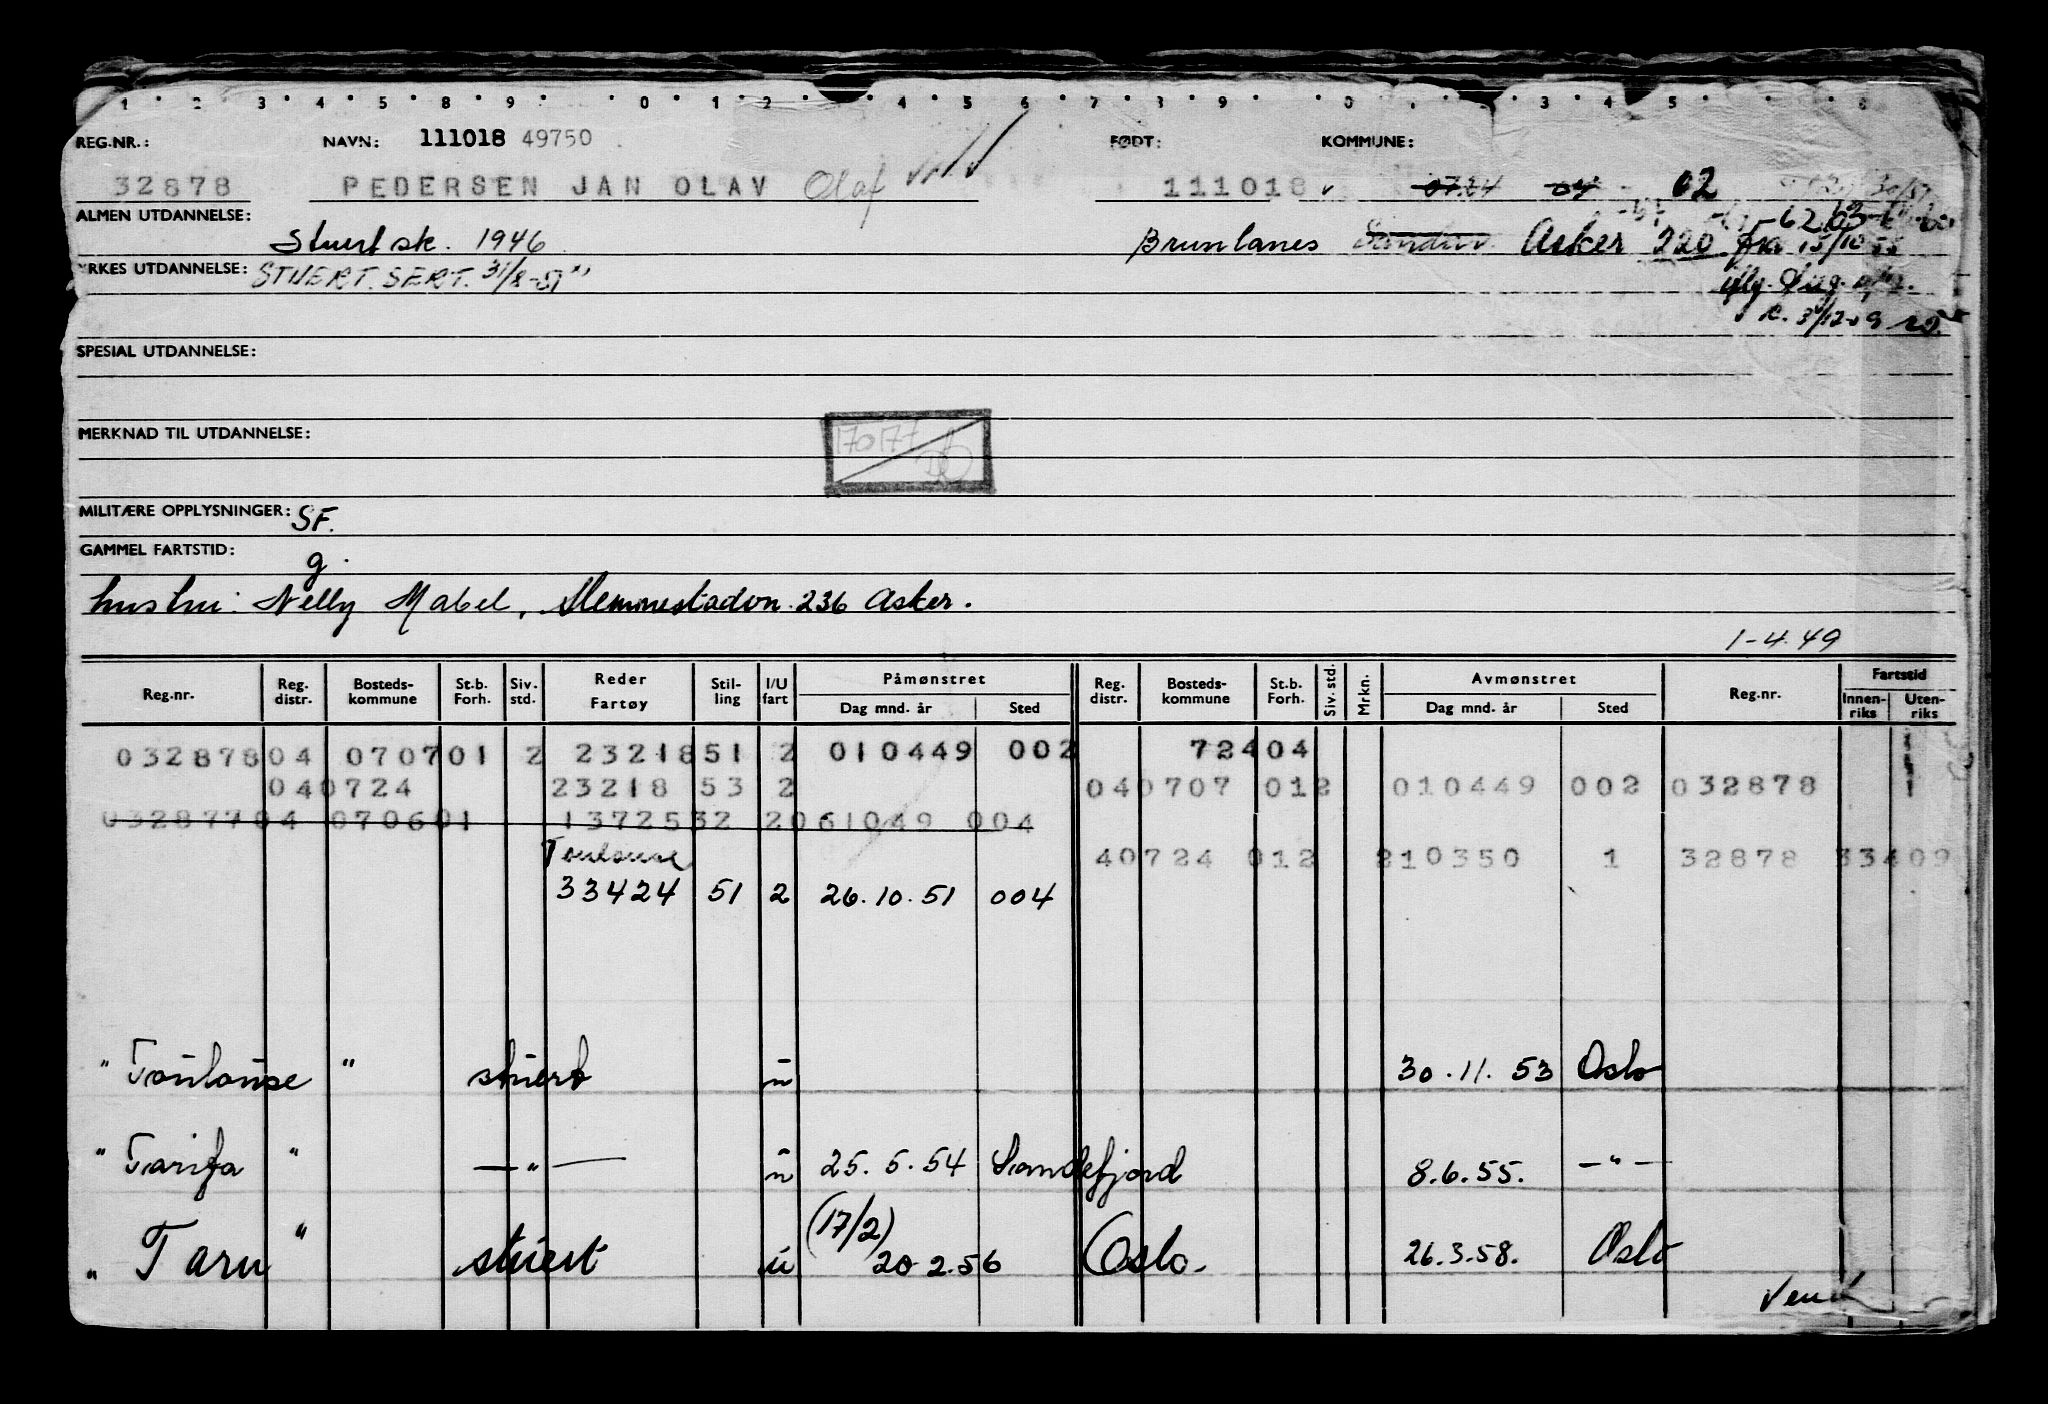 1 2 3 4 5 8 9 0 1 2 4 5 6 7 8 9 0 3 4 5
REG.NR.: NAVN: 111018 49750 FØDT: KOMMUNE:
32878 PEDERSEN JAN OLAV Olaf 111018 0724 04 02
ALMEN UTDANNELSE: Stuert sk. 1946 Brunlanes Asker 220 fra 15/10
YRKES UTDANNELSE: STUERT. SERT. 31/8-51
SPESIAL UTDANNELSE:
MERKNAD TIL UTDANNELSE:
170177
MILITÆRE OPPLYSNINGER: SF.
GAMMEL FARTSTID: g.
hustru: Nelly Mabel, Slemmestadvn. 236 Asker.
1-4.49
Reg.nr. Reg. distr. Bosteds-kommune St.b. Forh. Siv. std. Reder Fartøy Stil-ling I/U fart Påmønstret Dag mnd. år Sted Reg. distr. Bosteds-kommune St.b. Forh. Siv. std. Mrkn. Avmønstret Dag mnd. år Sted Reg.nr. Fartstid Innen-riks Uten-riks
032878 04 0707 01 2 23218 51 2 010449 002 72404
040724 23218 53 2 040707 012 010449 002 032878
032877 04 0706 01 13725 32 2 061049 004
Toulouse 40724 012 210350 1 32878 33409
33424 51 2 26.10.51 004
" Toulouse " stuert u 30.11.53 Oslo
" Tarifa " — " — u 25.5.54 Sandefjord 8.6.55. — " —
" Taru " stuert u (17/2) 20.2.56 Oslo. 26.3.58. Oslo